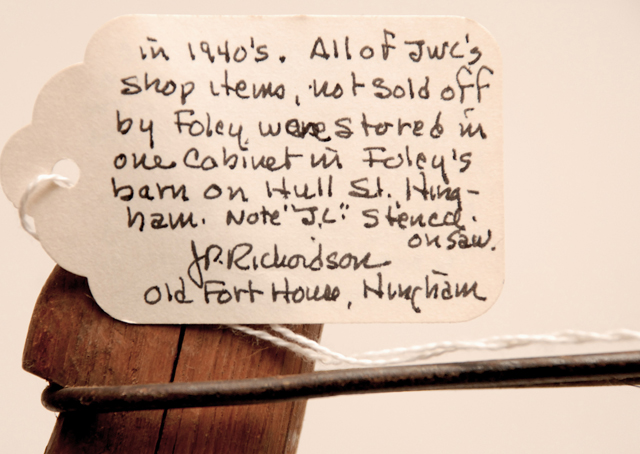 in 1940's. All of JWC's
shop items, not sold off
by Foley, were stored in
one cabinet in Foley's
barn on Hull St. Hing-
ham. Note "J.C." stencil.
on saw.
J.P. Richardson
Old Fort House, Hingham